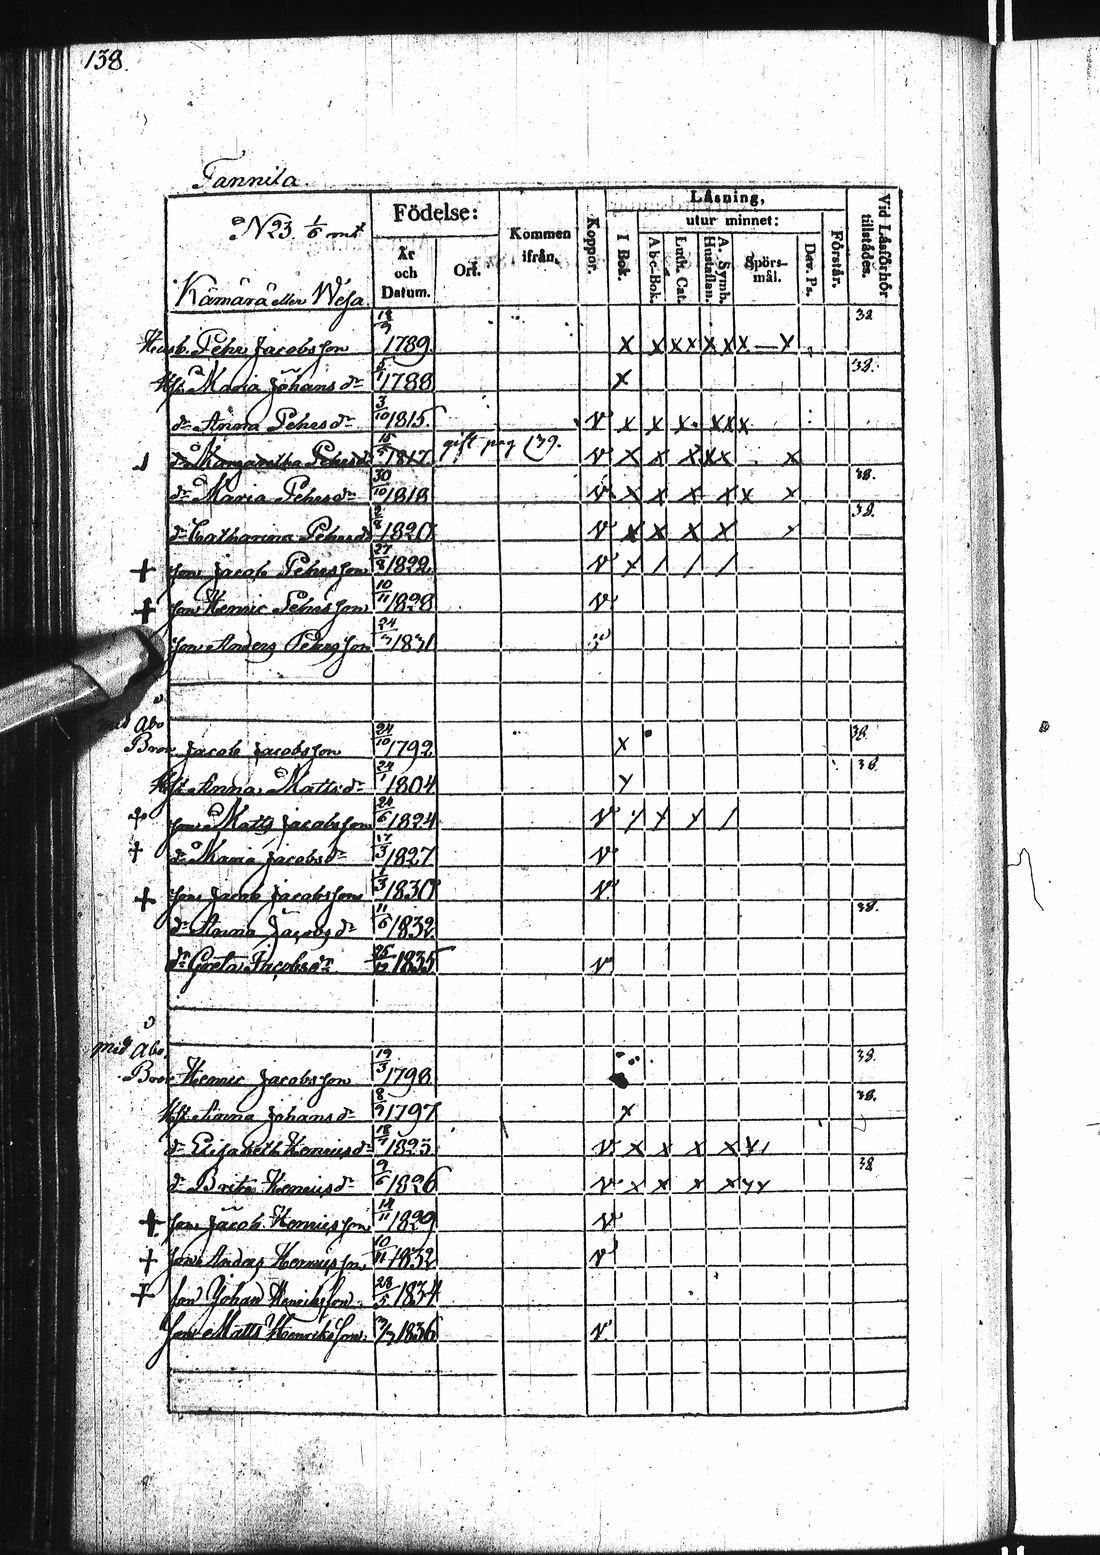 138.
Tannila.
N 23. 1/6 mt
Kämärä eller Wesa
Födelse:
År och Datum.
Ort.
Kommen ifrån.
Koppor.
Läsning,
I Bok.
utur minnet:
Abc-Bok.
Luth. Cat.
A. Symb. Hustaflan.
Spörsmål.
Dav. Ps.
Förstår.
Vid Läsförhör tillstädes.
Husb. Pehr Jacobsson 18/9 1789. x x xx xxx — x 38
Hu Maria Johansdr 5/1 1788 x 38.
dr Anna Pehrsdr 3/10 1815. v x x x. xxx
dr Margaretha Pehrsdr 1817 gift pag 139. v x x x xx x
dr Maria Pehrsdr 30/10 1818 v x x x x x x 38.
dr Catharina Pehrsdr 1820 v x x x x 38.
+ son Jacob Pehrsson 27/8 1822. v x / / /
+ son Henric Pehrsson 10/11 1828 v
son Anders Pehrsson 1831
med Åbo
Bror Jacob Jacobsson 24/10 1792 x 38
Hu Anna Mattsdr 24/1 1804 x 38.
son Matts Jacobsson 24/6 1824 v / x x /
+ dr Maria Jacobsdr 17/3 1827 v
+ son Jacob Jacobsson 1830 v
dr Anna Jacobsdr 11/6 1832 38.
dr Greta Jacobsdr 1835 v
med Åbo
Bror Henric Jacobsson 19/3 1798 38.
Hu Anna Johansdr 1797 x 38.
dr Elisabeth Henricsdr 1823 v x x x x x
dr Brita Henricsdr 9/6 1826 v x x x x x x 38
+ son Jacob Henricsson 14/11 1829 v
+ son Anders Henricsson 10/11 1832 v
+ son Johan Henriksson 28/5 1834
son Matts Henriksson 1836 v